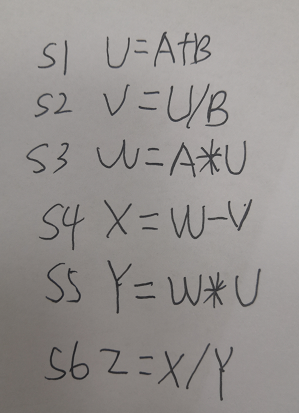 S1 U=A+B
S2 V=U/B
S3 W=A*U
S4 X=W-V
S5 Y=W*U
S6 Z=X/Y